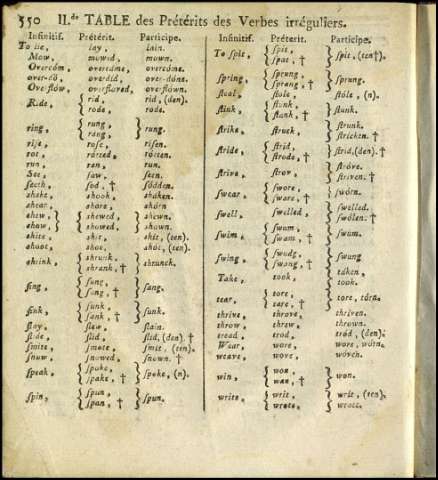 350 II.de TABLE des Prétérits des Verbes irréguliers.
Infinitif. Prétérit. Participe.
To lie, lay, lain.
Mow, mowed, mown.
Overcóme, overcáme, overcóme.
over-dó, overdíd, over-dóne.
Overflów, overflówed, overflówn.
Ride, { rid, rode, rid, (den).
ring, { rung, rang, } rung.
rise, rose, risen.
rot, rótted, rótten.
run, ran, run.
See, saw, seen.
seeth, sod, † sódden.
shake, shook, sháken.
shear, shore, shórn
shew, shaw, } { shewed, showed, shewn. shown.
shite, shit, shit, (ten).
shoot, shot, shot, (ten).
shrink, { shrunk, shrank, † } shrunck.
sing, { sung, sang, † } sung.
sink, { sunk, sank, † } sunk.
slay, slew, slain.
slide, slid, slid, (den). †
smite, smote, smit, (ten).
snow, snowed, snown. †
speak, { spoke, spake, † } spoke, (n).
spin, { spun, span, † } spun.
Infinitif. Préterit. Participe.
To spit, { spit, spat, † } spit, (ten†).
spring, { sprung, sprang, † } sprung.
steal, stole, stóle, (n).
stink, { stunk, stank, † } stunk.
strike, struck, { strunk. stricken. †
stride, { strid, strode, † } strid, (den). †
strive, strov, { stróve. striven. †
swear, { swore, sware, † } swórn.
swell, swelled, { swelled. swólen. †
swim, { swum, swam, † } swum.
swing, { swung, swang, † } swung.
Take, took, { táken, took.
tear, { tore, tare, † } tore, tórn.
thrive, throve, thriven.
throw, threw, thrown.
tread, trod, tród, (den).
Wear, wore, wore, wórn.
weave, wove, wóven.
win, { won, wan, † } won.
write, { writ, wrote, { writ, (ten), wrote.